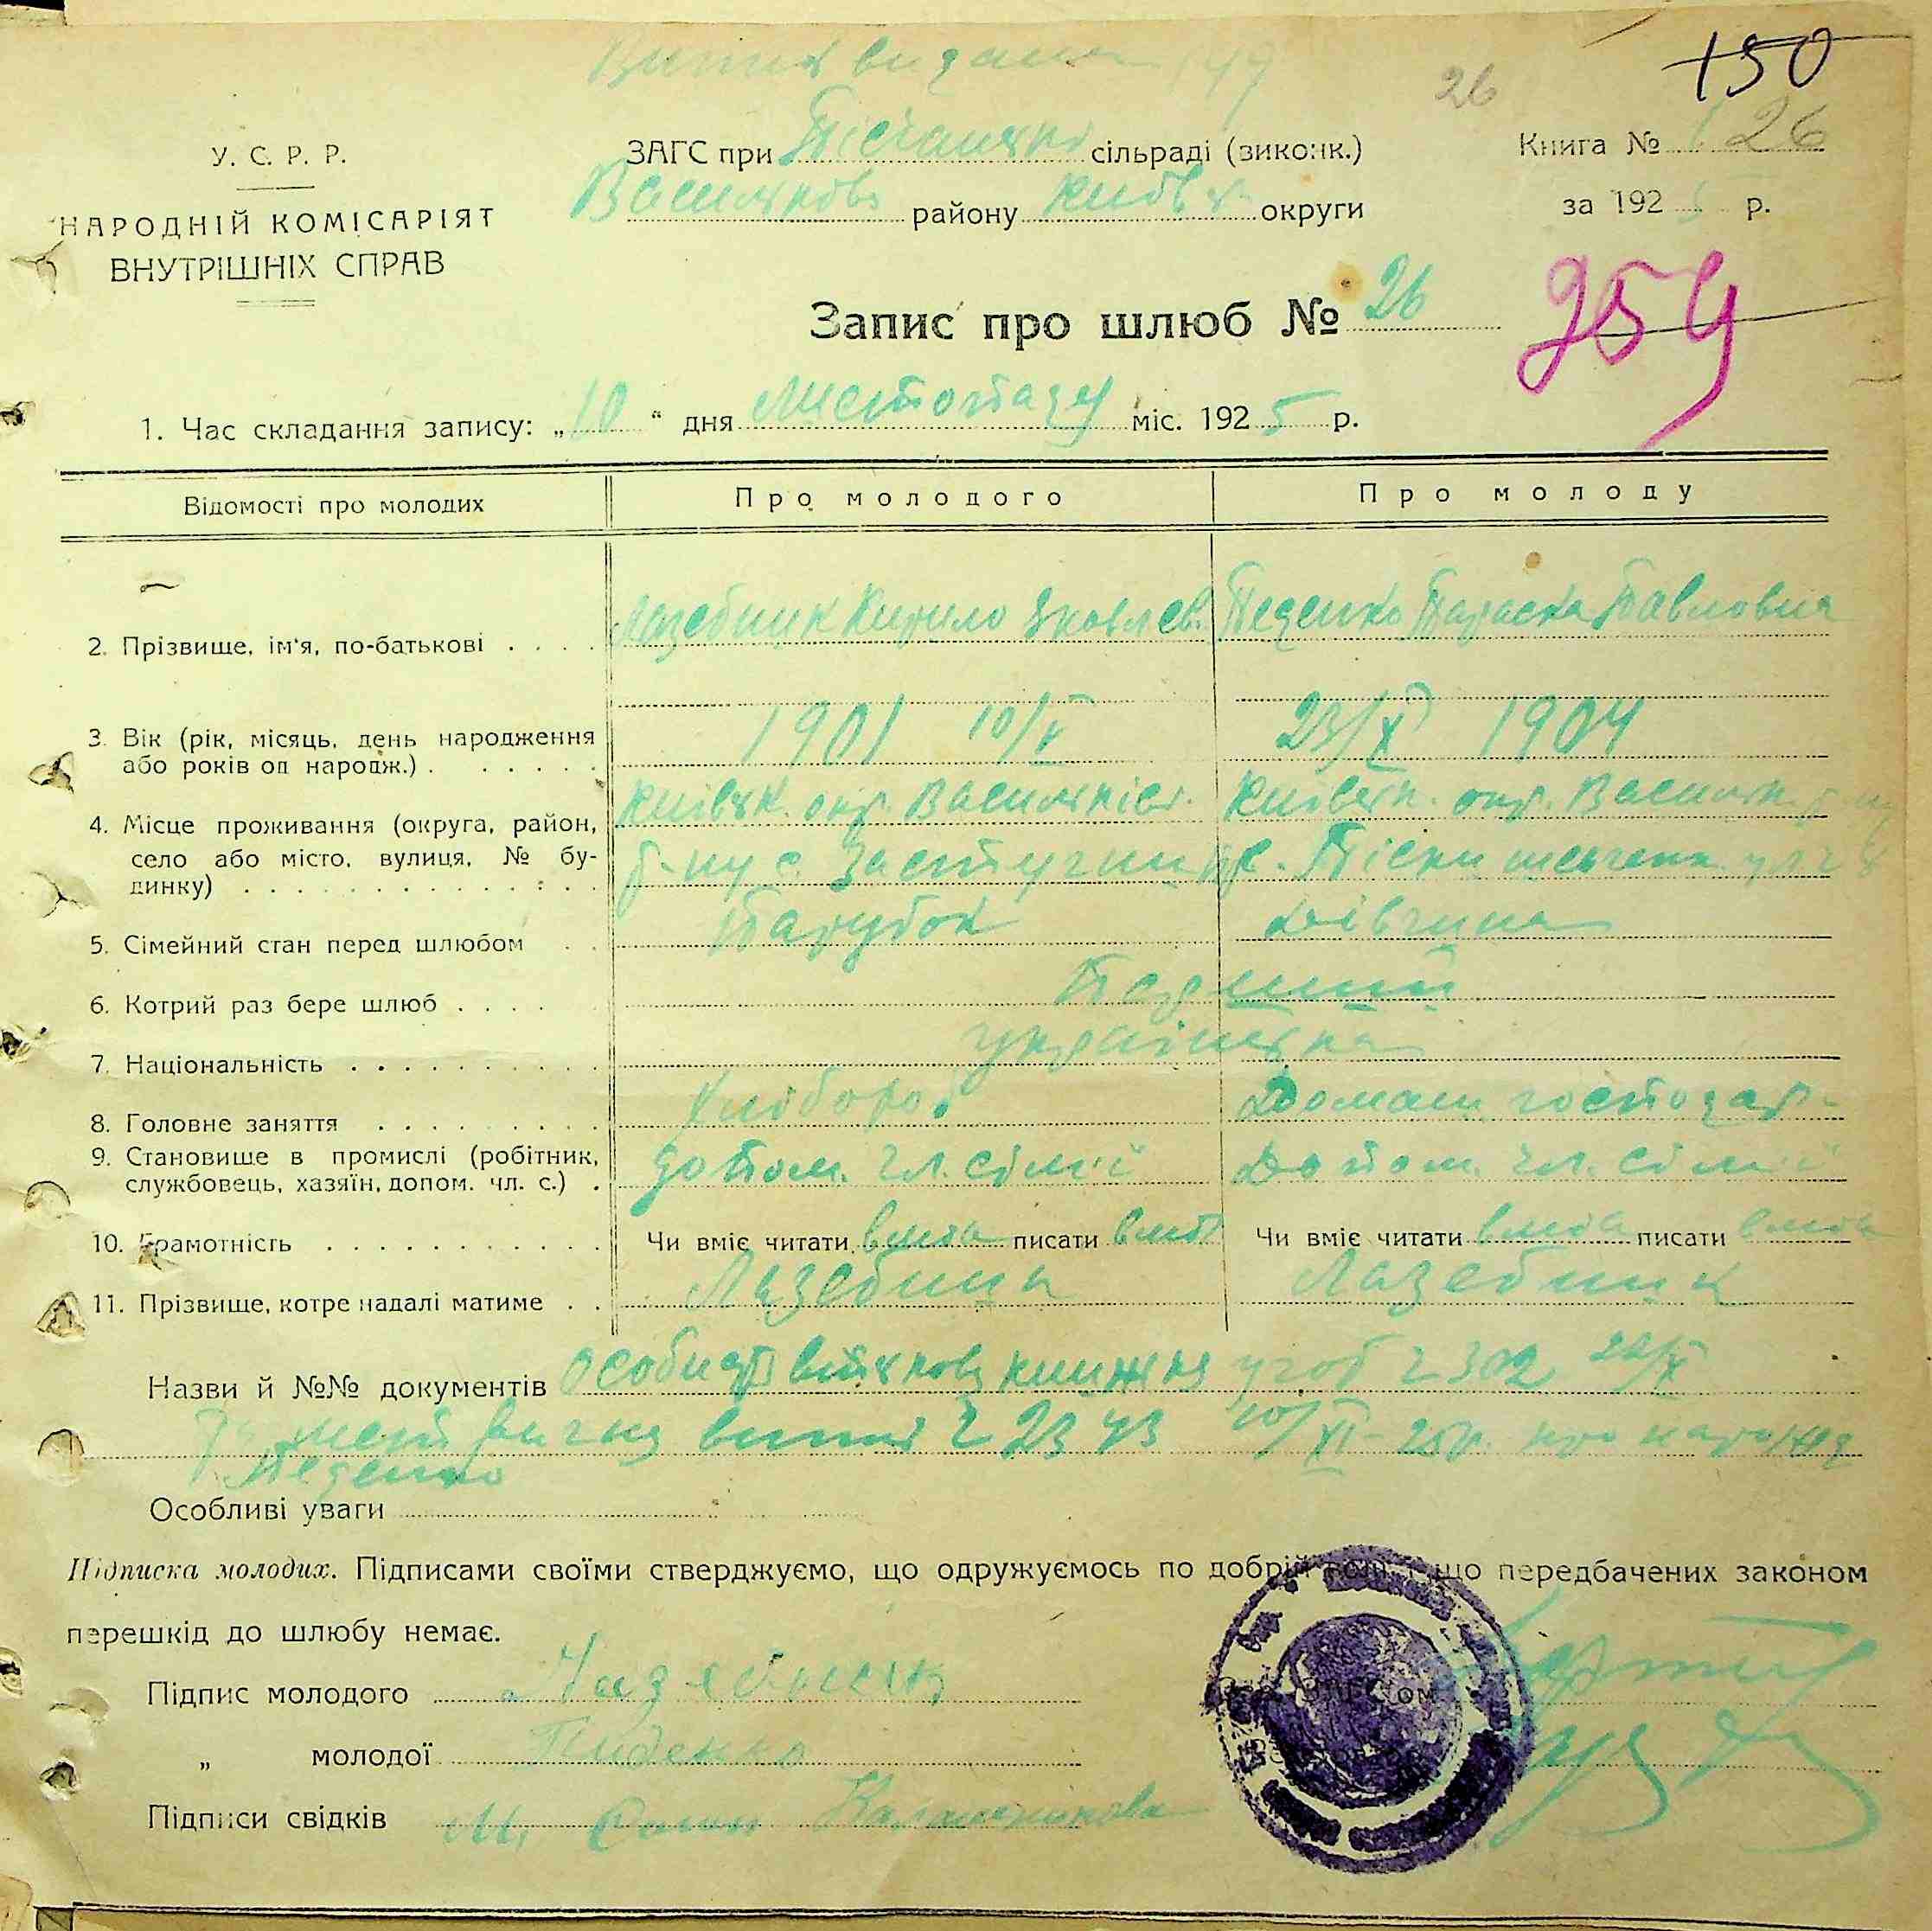 Витяг видано 149
26 150
У. С. Р. Р.
НАРОДНІЙ КОМІСАРІЯТ
ВНУТРІШНІХ СПРАВ
ЗАГС при Пісчанськ сільраді (виконк.)
району Київськ округи
Книга № 26
за 192 5 р.
Запис про шлюб № 26
259
1. Час складання запису: „10“ дня листопаду міс. 1925 р.
Відомості про молодих Про молодого Про молоду
2. Прізвище, ім'я, по-батькові . . . . Лазебник Кирило Яковлев. Педенко Параска Павловна
3. Вік (рік, місяць, день народження
або років од народж.) . . . . . . 1901 10/V 23/X 1904
4. Місце проживання (округа, район, Київськ. окр. Васильківс. Київськ. окр. Васильк.
село або місто, вулиця, № бу- р-ну с. Застугна с. Піски
динку) . . . . . . . . . . . . . .
5. Сімейний стан перед шлюбом . . Парубок Дівчина
6. Котрий раз бере шлюб . . . . Перший
7. Національність . . . . . . . . . . українська
8. Головне заняття . . . . . . . . . Хлібороб Домаш. господар-
9. Становище в промислі (робітник, допом. чл. сім'ї Допом. чл. сім'ї
службовець, хазяїн, допом. чл. с.) .
10. Грамотність . . . . . . . . . . . Чи вміє читати вміє писати вміє Чи вміє читати вміє писати вміє
11. Прізвище, котре надалі матиме . . Лазебник Лазебник
Назви й №№ документів Особиста військова книжка 302 22/X
Метрична витяг 2343 10/XI-25р. про народж
Педенко
Особливі уваги
Підписка молодих. Підписами своїми стверджуємо, що одружуємось по добрій волі і що передбачених законом
перешкід до шлюбу немає.
Підпис молодого Лазебник
„ молодої Педенко
Підписи свідків М.